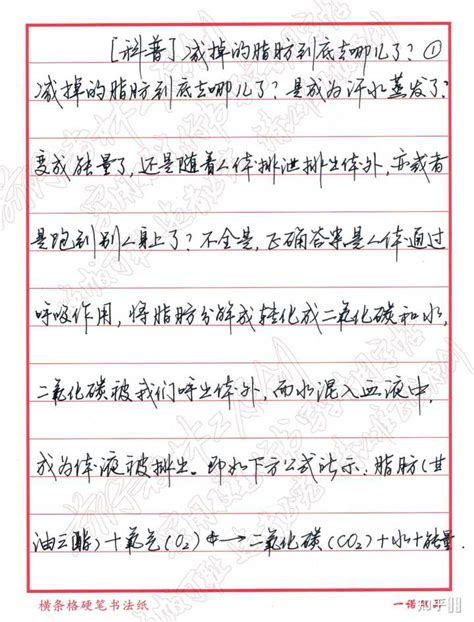 [科普]减掉的脂肪到底去哪儿了?①
减掉的脂肪到底去哪儿了?是成为汗水蒸发了?
变成能量了,还是随着人体排泄排出体外,亦或者
是跑到别人身上了?不全是,正确答案是人体通过
呼吸作用,将脂肪分解成转化成二氧化碳和水,
二氧化碳被我们呼出体外,而水混入血液中,
成为体液被排出。即如下方公式所示:脂肪(甘
油三酯)+氧气(O₂)⟷二氧化碳(CO₂)+水+能量.
横条格硬笔书法纸
一诺
知乎